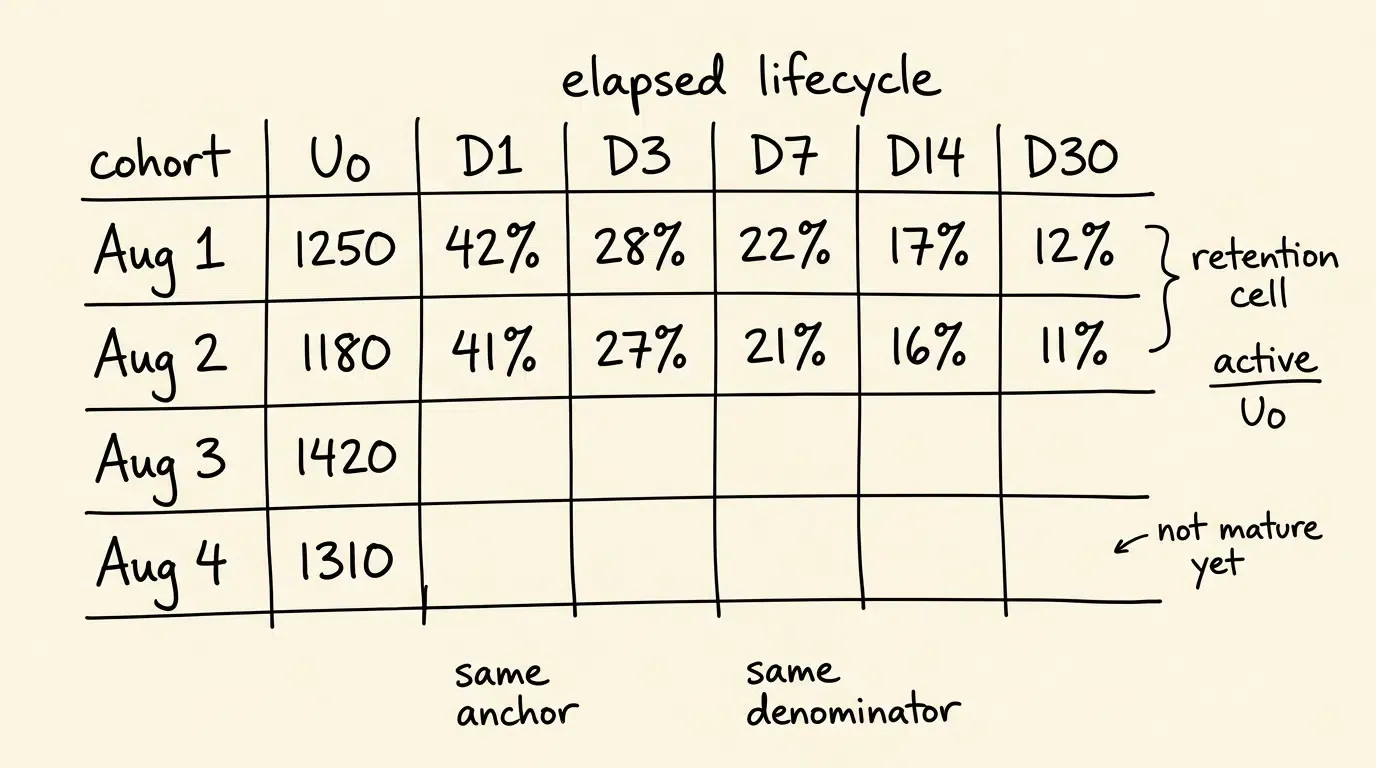 elapsed lifecycle
cohort U₀ D1 D3 D7 D14 D30
Aug 1 1250 42% 28% 22% 17% 12%
Aug 2 1180 41% 27% 21% 16% 11%
Aug 3 1420
Aug 4 1310
retention
cell
active
U₀
not mature
yet
same
anchor
same
denominator